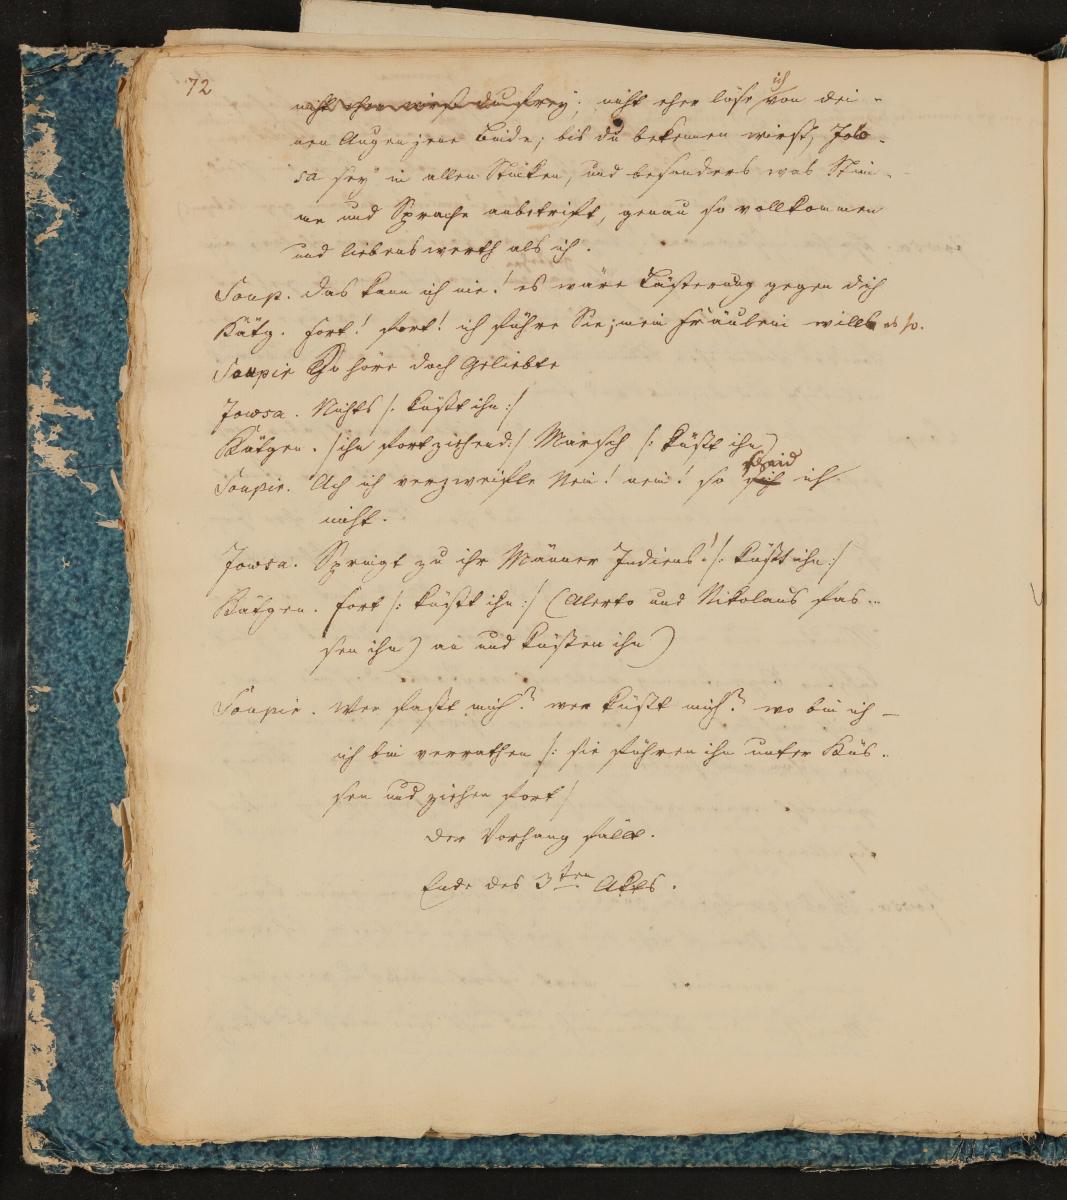 72
nicht eher wirst du frey; nicht eher löse ich von dei-
nen Augen jene Binde, bis du bekennen wirst, Jow-
sa sey in allen Stücken, und besonders was Stim-
me und Sprache anbetrift, genau so vollkommen
und liebenswerth als ich.
Soup. das kann ich nie! es wäre Lästerung gegen dich
Kätg. Fort! fort! ich führe Sie; mein Fräulein will es so.
Soupir So höre doch Geliebte
Jowsa. Nichts /: küßt ihn :/
Kätgen. /ihn fortziehend:/ Marsch /: küßt ihn)
Soupir. Ach ich verzweifle Nein! nein! so ich
nicht.
Jowsa. Springt zu ihr Männer Indiens! /: küßt ihn :/
Kätgen. fort /: küßt ihn :/ (Alerto und Nikolaus fas-
sen ihn) an und küßen ihn)
Soupir. Wer faßt mich? wer küßt mich? wo bin ich –
ich bin verrathen /: sie führen ihn unter Küs-
sen und ziehen fort /
der Vorhang fällt.
Ende des 3ten Akts.